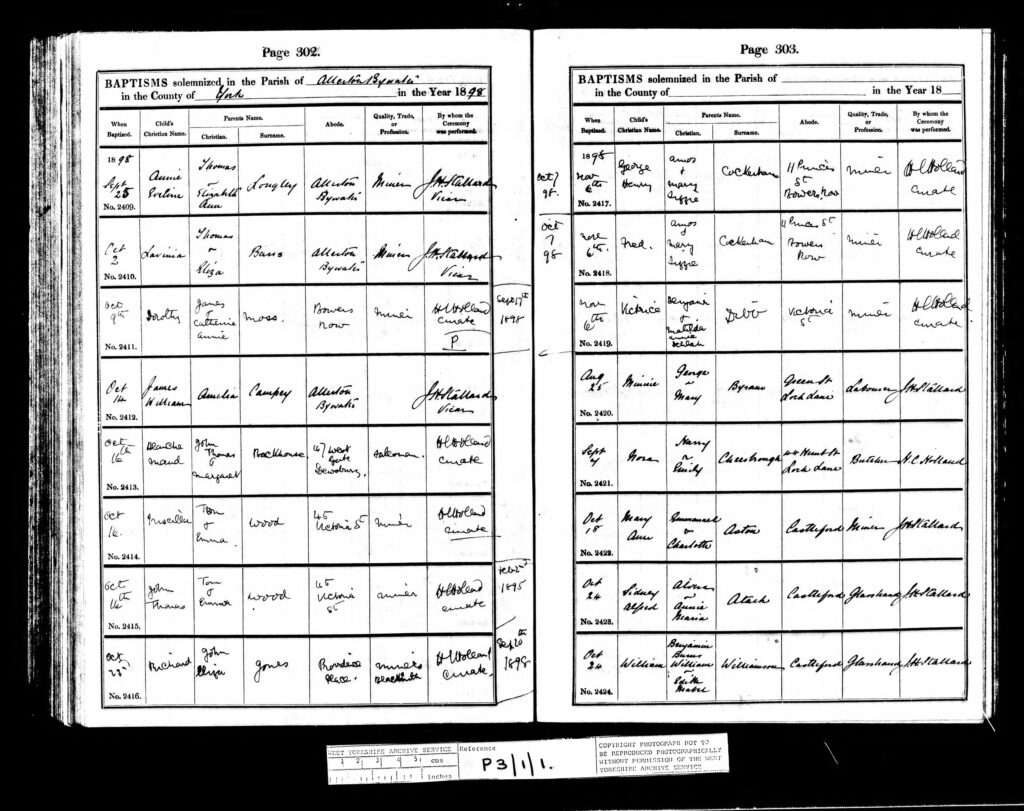 Page 302.
BAPTISMS solemnized in the Parish of Allerton Bywater
in the County of York in the Year 1898
When Baptized. Child's Christian Name. Parents Name. Christian. Surname. Abode. Quality, Trade, or Profession. By whom the Ceremony was performed.
1898 Sept 25 No. 2409. Annie Eveline Thomas & Elizabeth Ann Longley Allerton Bywater Miner J.H. Stallard Vicar
Oct 2 No. 2410. Lavinia Thomas & Eliza Allerton Bywater Miner J.H. Stallard Vicar
Oct 9th No. 2411. Dorothy James & Catherine Annie Moss. Bowers Row Miner H C Holland Curate P Sept 17th 1898
Oct 14 No. 2412. James William Amelia Campey Allerton Bywater J.H. Stallard Vicar
Oct 16th No. 2413. Blanche Maud John Thomas & Margaret Backhouse 47 West Gate Dewsbury. Salesman. H C Holland Curate
Oct 16. No. 2414. Priscilla Tom & Emma. Wood 45 Victoria St Miner H C Holland Curate
Oct 16th No. 2415. John Thomas Tom & Emma Wood 45 Victoria St Miner H C Holland Curate 1895
Oct 23rd No. 2416. Richard John Eliza Jones Providence Place. H C Holland Curate. Sept 20th 1898
Page 303.
BAPTISMS solemnized in the Parish of
in the County of in the Year 18
When Baptized. Child's Christian Name. Parents Name. Christian. Surname. Abode. Quality, Trade, or Profession. By whom the Ceremony was performed.
Oct 7 98. 1898 Nov 6th No. 2417. George Henry Amos & Mary Lizzie Cockerham 11 Princes St Bowers Row Miner H C Holland Curate
Oct 7 98 Nov 6th. No. 2418. Fred. Amos & Mary Lizzie Cockerham 11 Princes St Bowers Row Miner H C Holland Curate
Nov 6th No. 2419. Benjamin & Matilda Annie Dibb Victoria St Miner H C Holland Curate.
Aug 25 No. 2420. Minnie George & Mary Green St Lock Lane Labourer J.H. Stallard
Sept 4 No. 2421. Nora Harry & Emily Cheesbrough 44 Hunt St Lock Lane Butcher H. C. Holland
Oct 18 No. 2422. Mary Ann Emmanuel & Charlotte Aston Castleford Miner J.H. Stallard
Oct 24 No. 2423. Sidney Alfred & Annie Maria Atack Castleford Glasshand J.H. Stallard
Oct 24 No. 2424. William Benjamin Burns William & Edith Mabel Williamson Castleford Glasshand J.H. Stallard
WEST YORKSHIRE ARCHIVE SERVICE
1 2 3 4 5 cms
Inches
Reference
P3/1/1.
COPYRIGHT PHOTOGRAPH NOT TO
BE REPRODUCED PHOTOGRAPHICALLY
WITHOUT PERMISSION OF THE WEST
YORKSHIRE ARCHIVE SERVICE